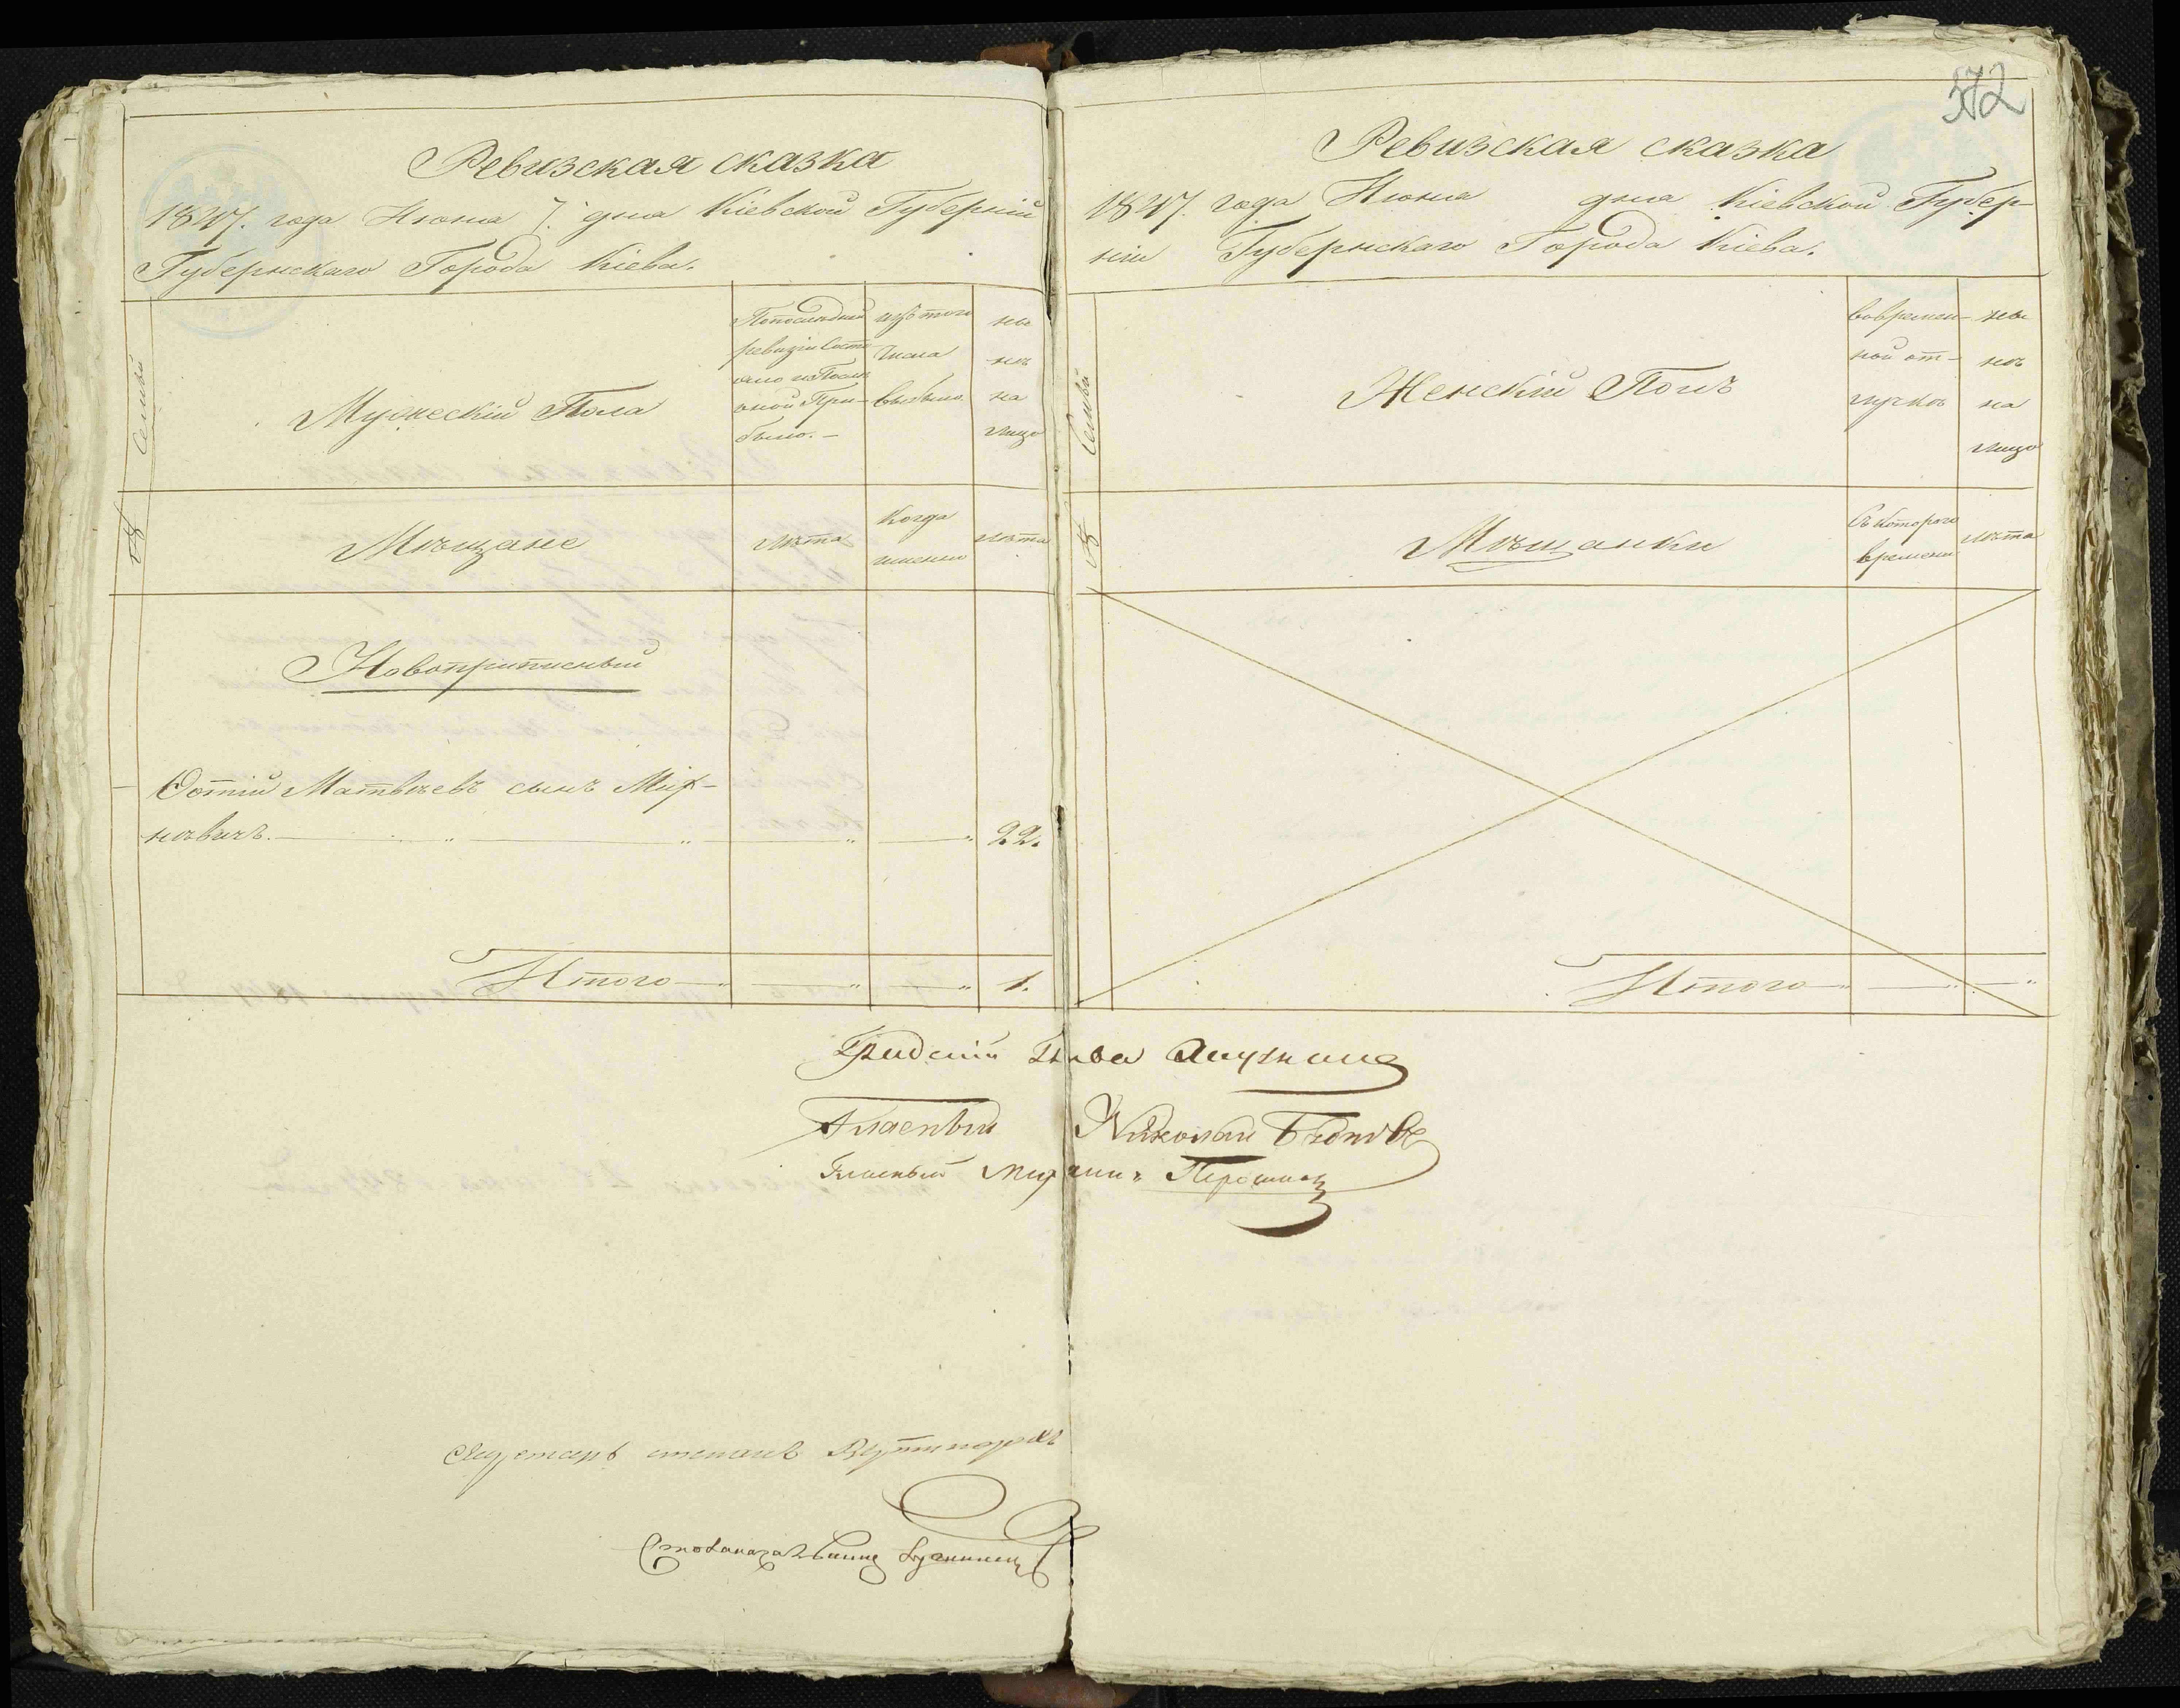 Ревизская сказка
1847. года Июня 7. дня Кіевской Губерніи
Губернскаго Города Кіева.
№ Семьи
Мужескій Пола
По последней
ревизіи Состо
яло и После
оной При-
было. -
изъ того
числа
выбыло
ны
нѣ
на
лицо
Мѣщане
лѣта
Когда
именно
лѣта
Новоприписный
Фотій Матвѣевъ сынъ Мих-
нѣвичъ. 22.
Итого 1.
572
Ревизская сказка
1847. года Июня дня Кіевской Губер-
ніи Губернскаго Города Кіева.
№ Семьи
Женскій Полъ
вовремен-
ной от-
лучкѣ
ны
нѣ
на
лицо
Мѣщанки
Съ которого
времени
лѣта
Итого
Градскій Глава
Гласный Николай
Гласный
степанъ
Столоначальникъ